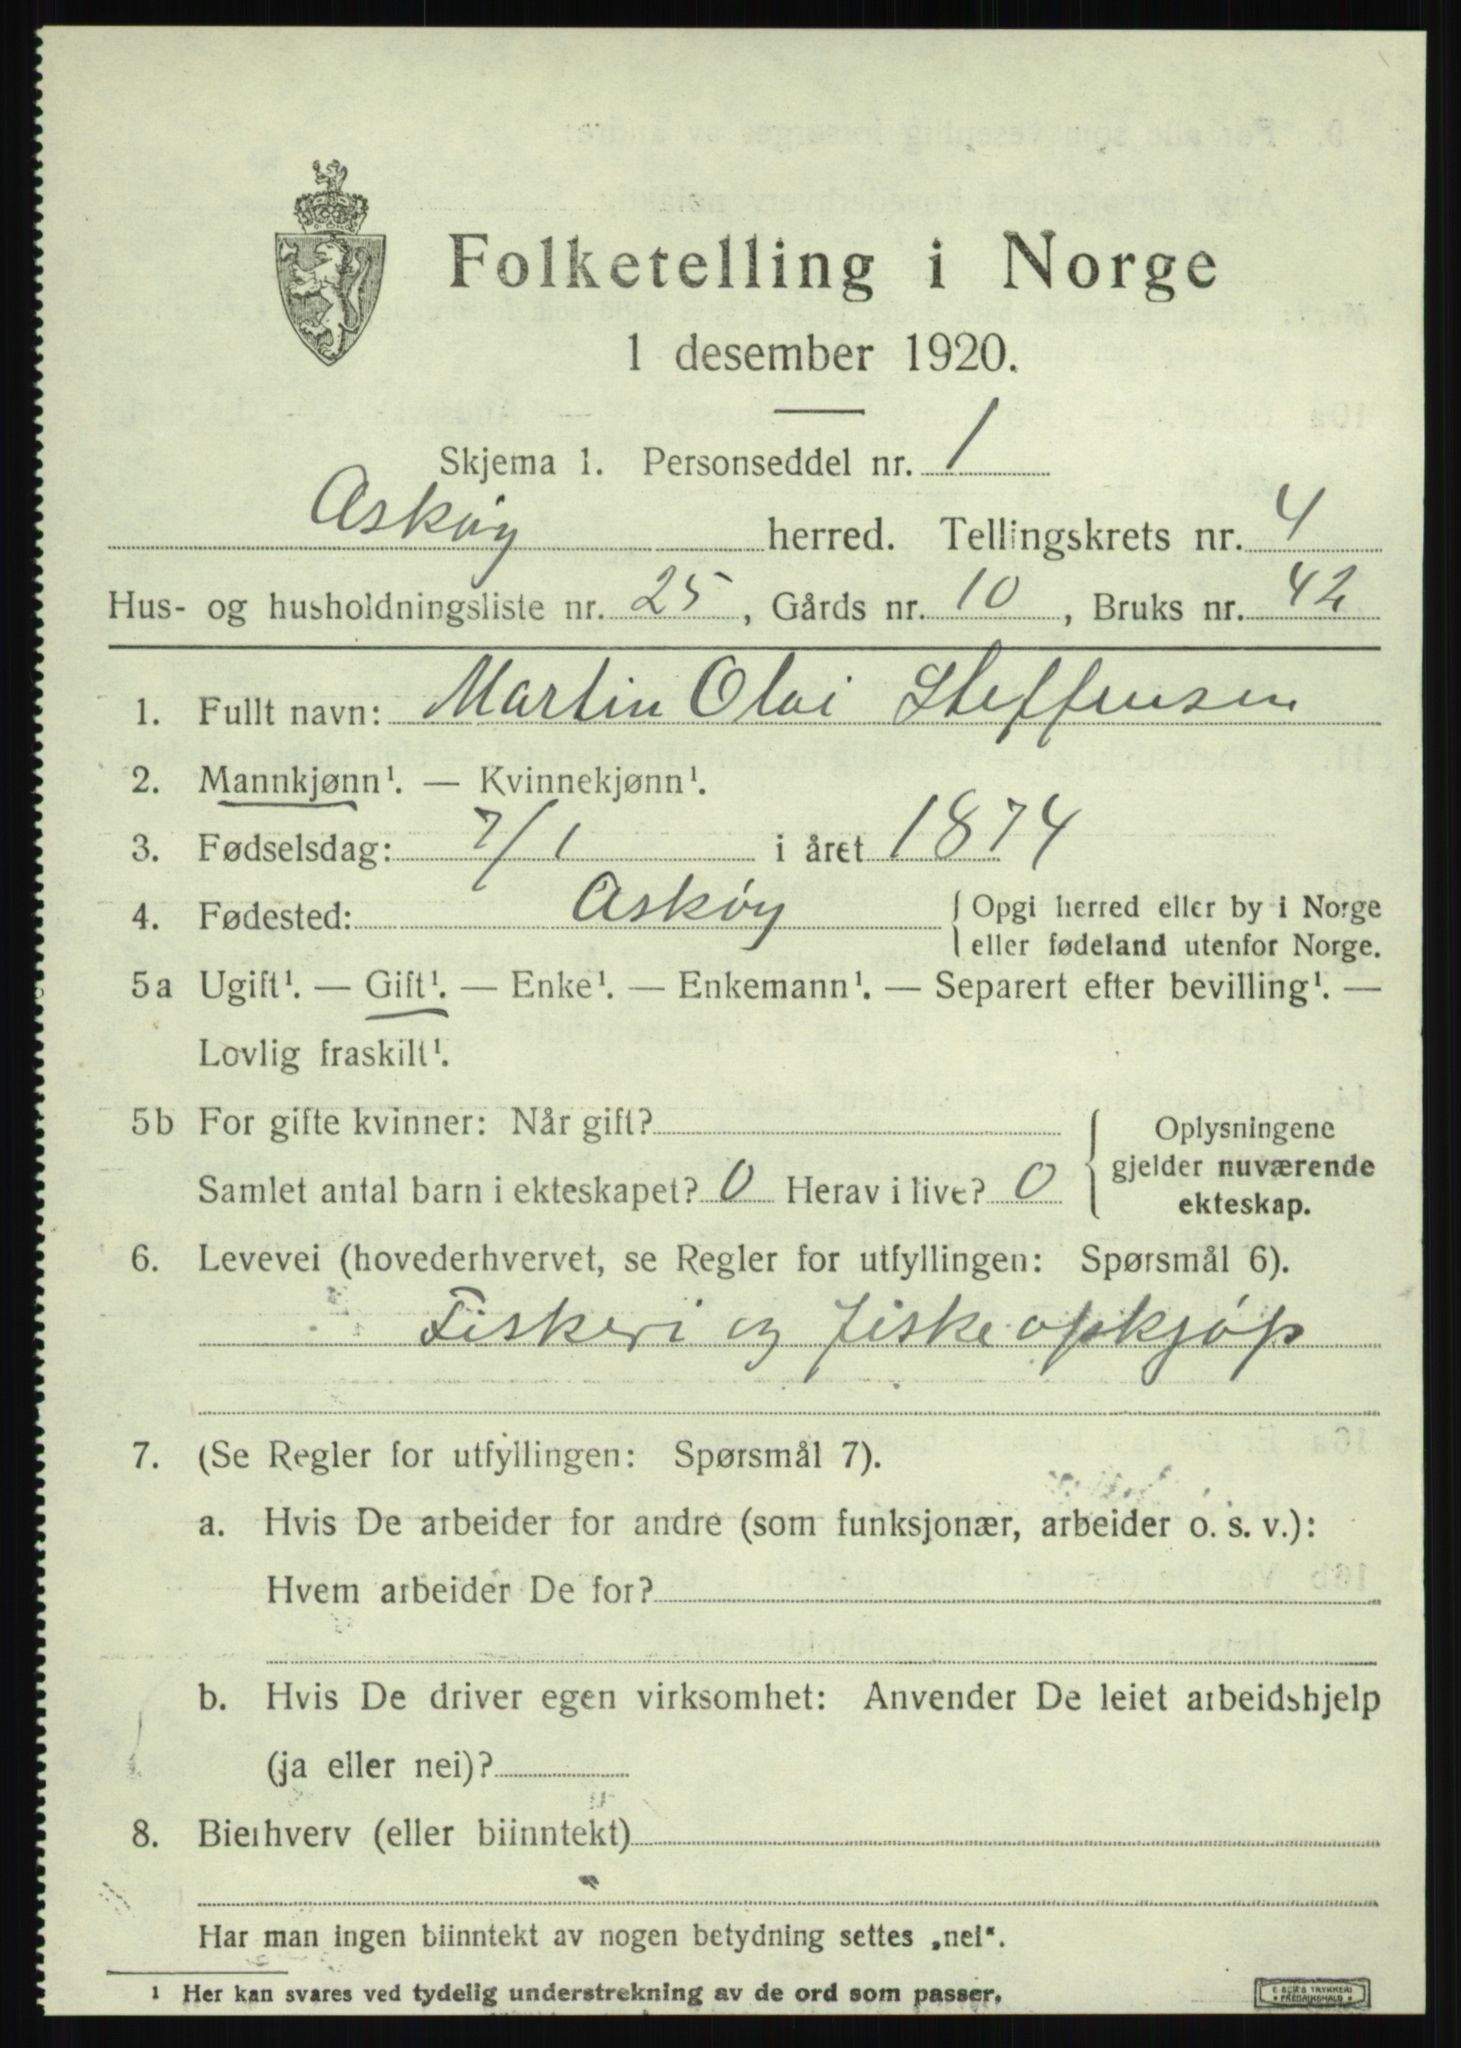 Folketelling i Norge
1 desember 1920.
Skjema 1. Personseddel nr. 1
Askøy herred. Tellingskrets nr. 4
Hus- og husholdningsliste nr. 25, Gårds nr. 10, Bruks nr. 42
1. Fullt navn: Martin Olai Steffensen
2. Mannkjønn¹. — Kvinnekjønn¹.
3. Fødselsdag: 7/1 i året 1874
4. Fødested: Askøy { Opgi herred eller by i Norge
eller fødeland utenfor Norge.
5a Ugift¹. — Gift¹. — Enke¹. — Enkemann¹. — Separert efter bevilling¹. —
Lovlig fraskilt¹.
5b For gifte kvinner: Når gift?
Samlet antal barn i ekteskapet? 0 Herav i live? 0
{ Oplysningene
gjelder nuværende
ekteskap.
6. Levevei (hovederhvervet, se Regler for utfyllingen: Spørsmål 6).
Fiskeri og fiskeopkjøp
7. (Se Regler for utfyllingen: Spørsmål 7).
a. Hvis De arbeider for andre (som funksjonær, arbeider o. s. v.):
Hvem arbeider De for?
b. Hvis De driver egen virksomhet: Anvender De leiet arbeidshjelp
(ja eller nei)?
8. Bierhverv (eller biinntekt)
Har man ingen biinntekt av nogen betydning settes „nei“.
¹ Her kan svares ved tydelig understrekning av de ord som passer.